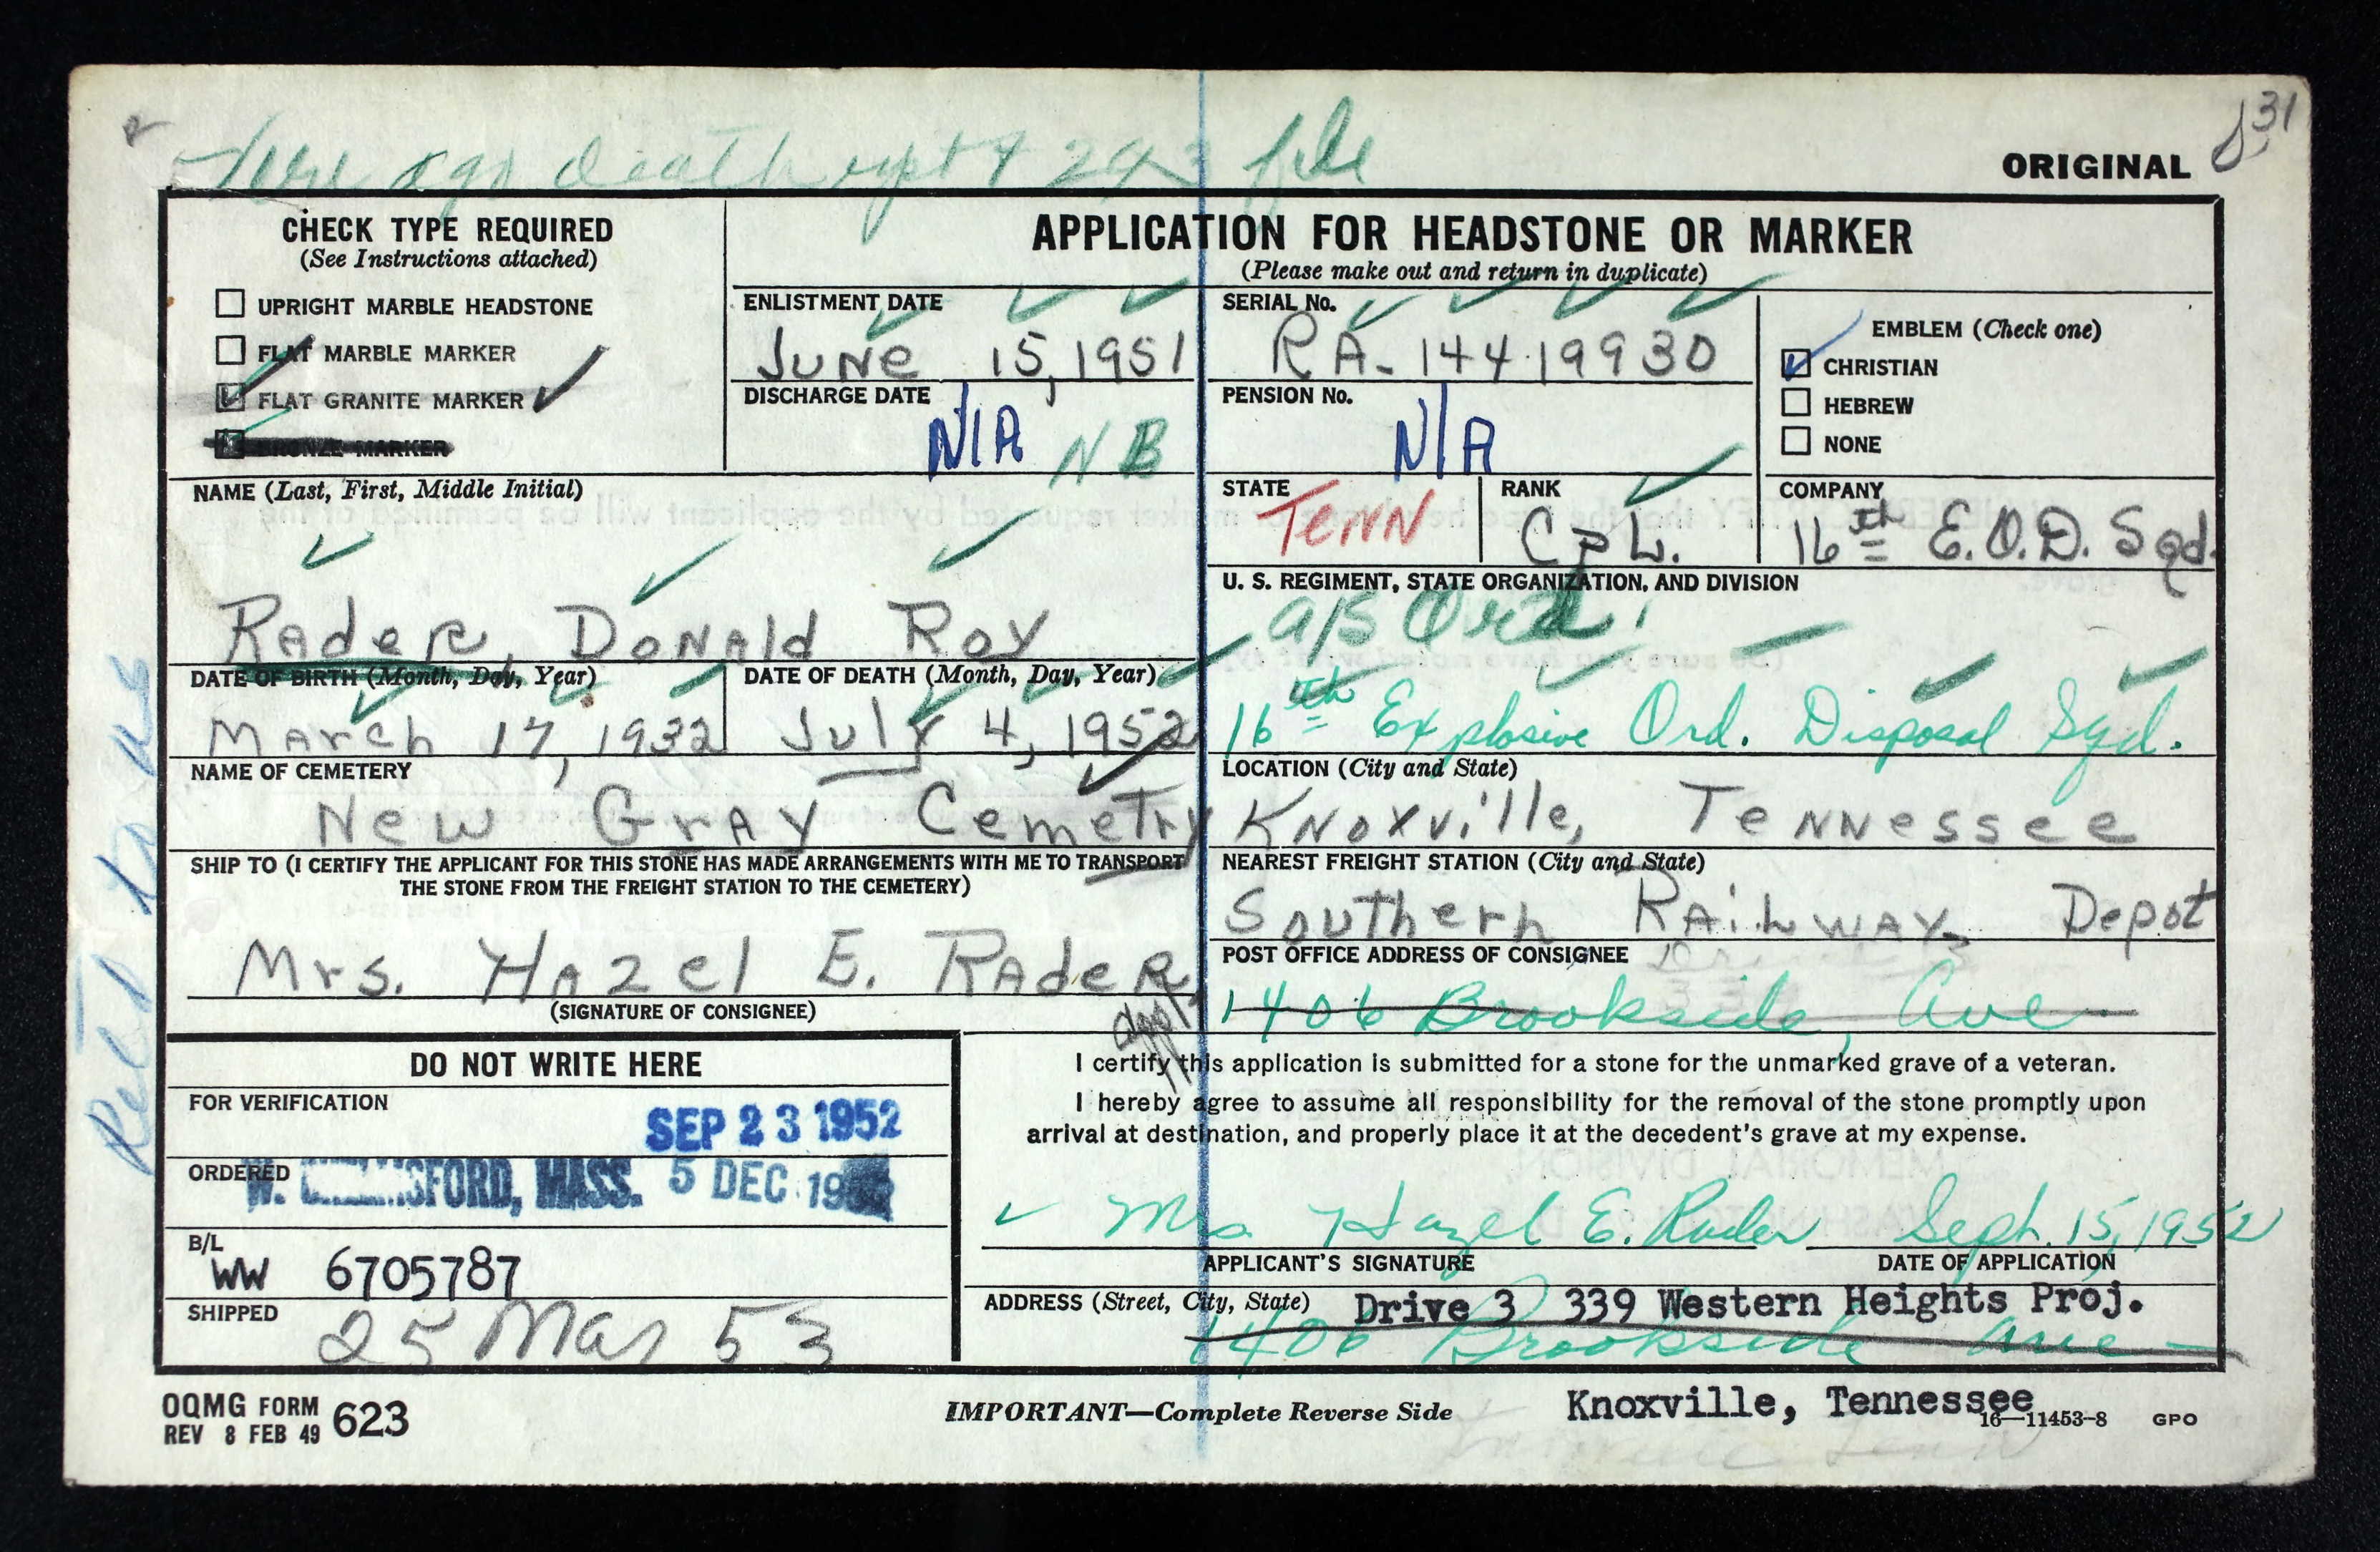 death rpt & 293 file
31
ORIGINAL
CHECK TYPE REQUIRED
(See Instructions attached)
UPRIGHT MARBLE HEADSTONE
FLAT MARBLE MARKER
FLAT GRANITE MARKER
BRONZE MARKER
APPLICATION FOR HEADSTONE OR MARKER
(Please make out and return in duplicate)
ENLISTMENT DATE
June 15, 1951
SERIAL No.
RA-14419930
EMBLEM (Check one)
CHRISTIAN
HEBREW
NONE
DISCHARGE DATE
N/A NB
PENSION No.
N/A
NAME (Last, First, Middle Initial)
Rader, Donald Roy
STATE
Tenn
RANK
CpL.
COMPANY
16th E.O.D. Sqd.
U. S. REGIMENT, STATE ORGANIZATION, AND DIVISION
a/s Ord.
16th Explosive Ord. Disposal Sqd.
DATE OF BIRTH (Month, Day, Year)
March 17, 1932
DATE OF DEATH (Month, Day, Year)
July 4, 1952
NAME OF CEMETERY
New Gray Cemetry
LOCATION (City and State)
Knoxville, Tennessee
SHIP TO (I CERTIFY THE APPLICANT FOR THIS STONE HAS MADE ARRANGEMENTS WITH ME TO TRANSPORT
THE STONE FROM THE FREIGHT STATION TO THE CEMETERY)
Mrs. Hazel E. Rader
(SIGNATURE OF CONSIGNEE)
NEAREST FREIGHT STATION (City and State)
Southern Railway Depot
POST OFFICE ADDRESS OF CONSIGNEE
1406 Brookside, Ave
appl
DO NOT WRITE HERE
FOR VERIFICATION
SEP 23 1952
ORDERED
W. SFORD, MASS. 5 DEC
B/L
WW 6705787
SHIPPED
25 Mar 53
I certify this application is submitted for a stone for the unmarked grave of a veteran.
I hereby agree to assume all responsibility for the removal of the stone promptly upon
arrival at destination, and properly place it at the decedent's grave at my expense.
Mrs Hazel E. Rader Sept. 15, 1952
APPLICANT'S SIGNATURE
DATE OF APPLICATION
ADDRESS (Street, City, State) Drive 3 339 Western Heights Proj.
1406 Brookside Ave
Knoxville, Tennessee
OQMG FORM 623
REV 8 FEB 49
IMPORTANT—Complete Reverse Side
16—11453-8 GPO